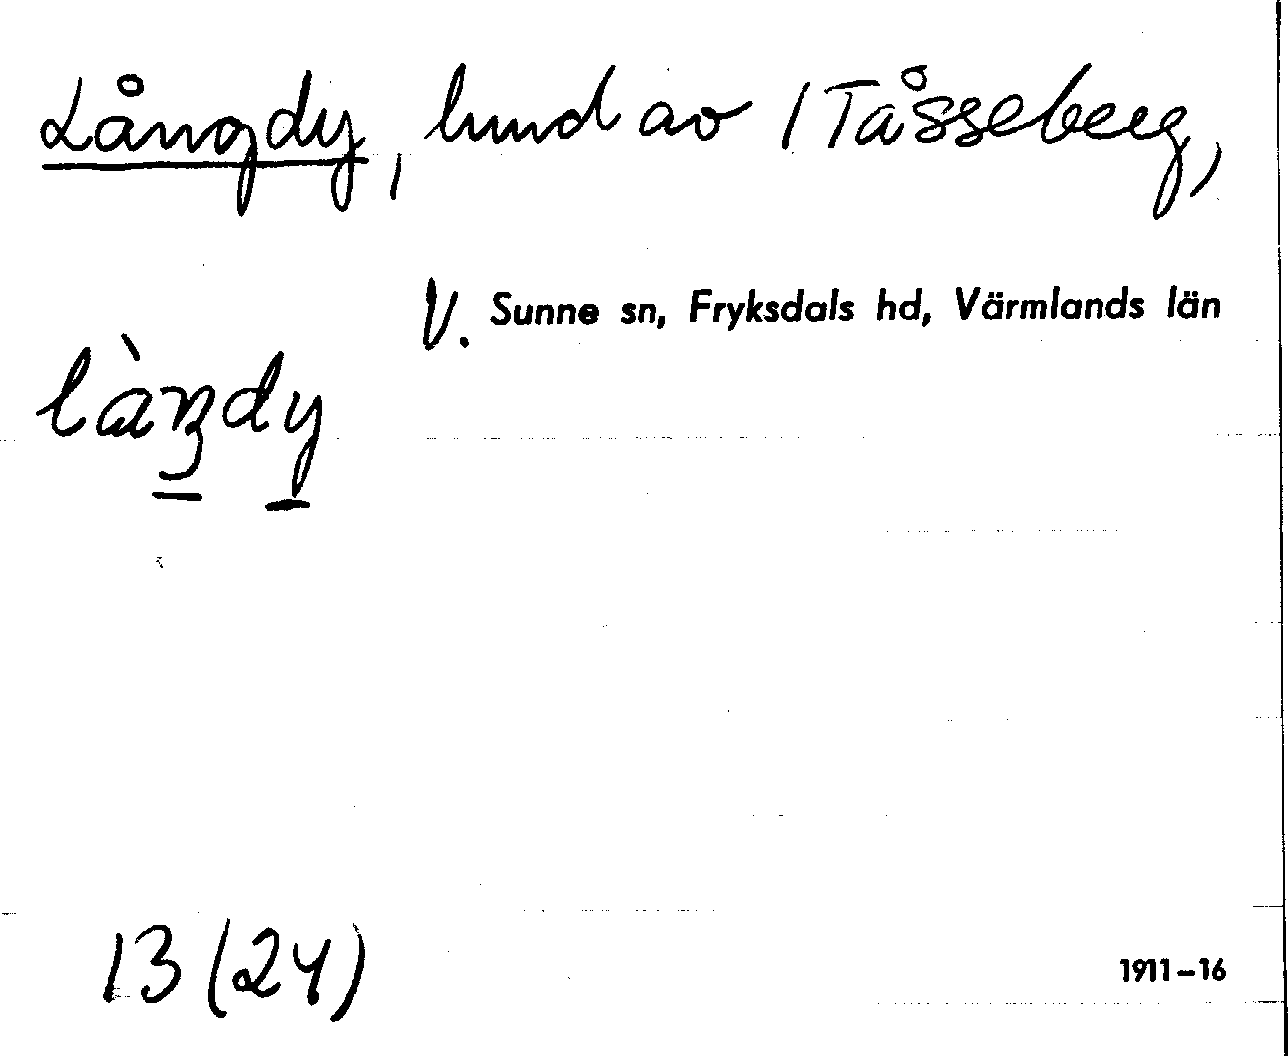 Långdy, lund av 1 Tåsseberg,
V. Sunne sn, Fryksdals hd, Värmlands län
làŋdy
13 (24)
1911–16